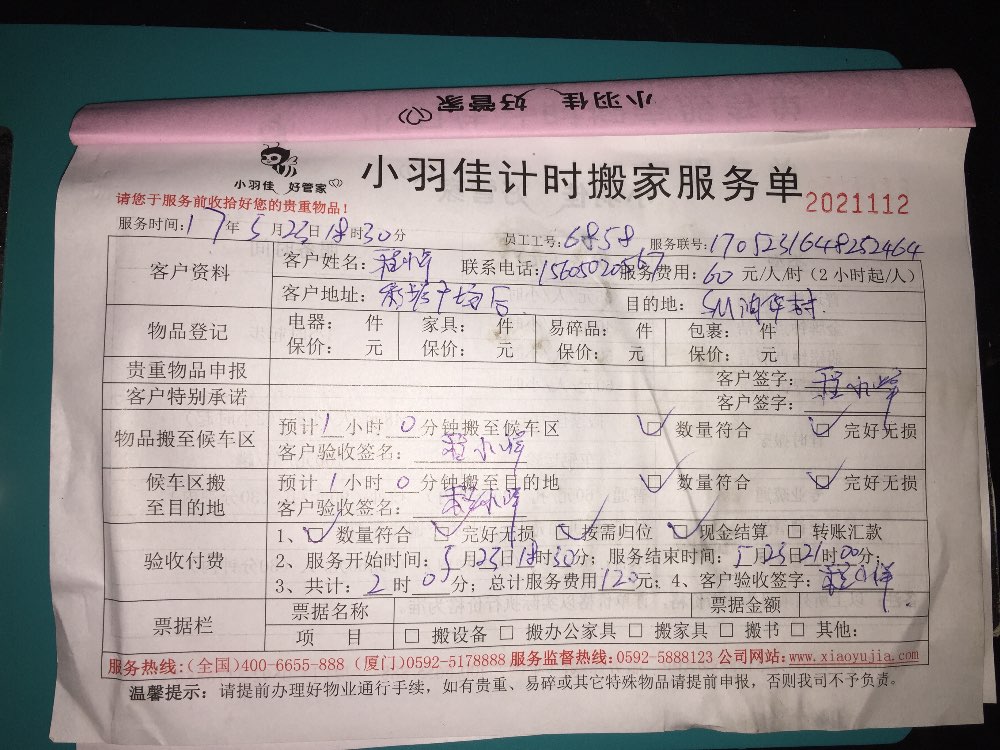 小羽佳 好管家
小羽佳 好管家
小羽佳计时搬家服务单
2021112
请您于服务前收拾好您的贵重物品！
服务时间：17年5月23日18时30分 员工工号：6858 服务联号：1705231648252464
客户资料 客户姓名： 联系电话： 服务费用：60元/人/时（2小时起/人）
客户地址： 目的地：
物品登记 电器： 件 家具： 件 易碎品： 件 包裹： 件
保价： 元 保价： 元 保价： 元 保价： 元
贵重物品申报 客户签字：
客户特别承诺 客户签字：
物品搬至候车区 预计1小时0分钟搬至候车区 数量符合 完好无损
客户验收签名：
候车区搬至目的地 预计1小时0分钟搬至目的地 数量符合 完好无损
客户验收签名：
验收付费 1、数量符合 完好无损 按需归位 现金结算 转账汇款
2、服务开始时间：5月23日18时30分；服务结束时间：5月23日21时00分；
3、共计：2时0分；总计服务费用120元；4、客户验收签字：
票据栏 票据名称 票据金额
项 目 搬设备 搬办公家具 搬家具 搬书 其他：
服务热线：（全国）400-6655-888（厦门）0592-5178888 服务监督热线：0592-5888123 公司网站：www.xiaoyujia.com
温馨提示：请提前办理好物业通行手续，如有贵重、易碎或其它特殊物品请提前申报，否则我司不予负责。